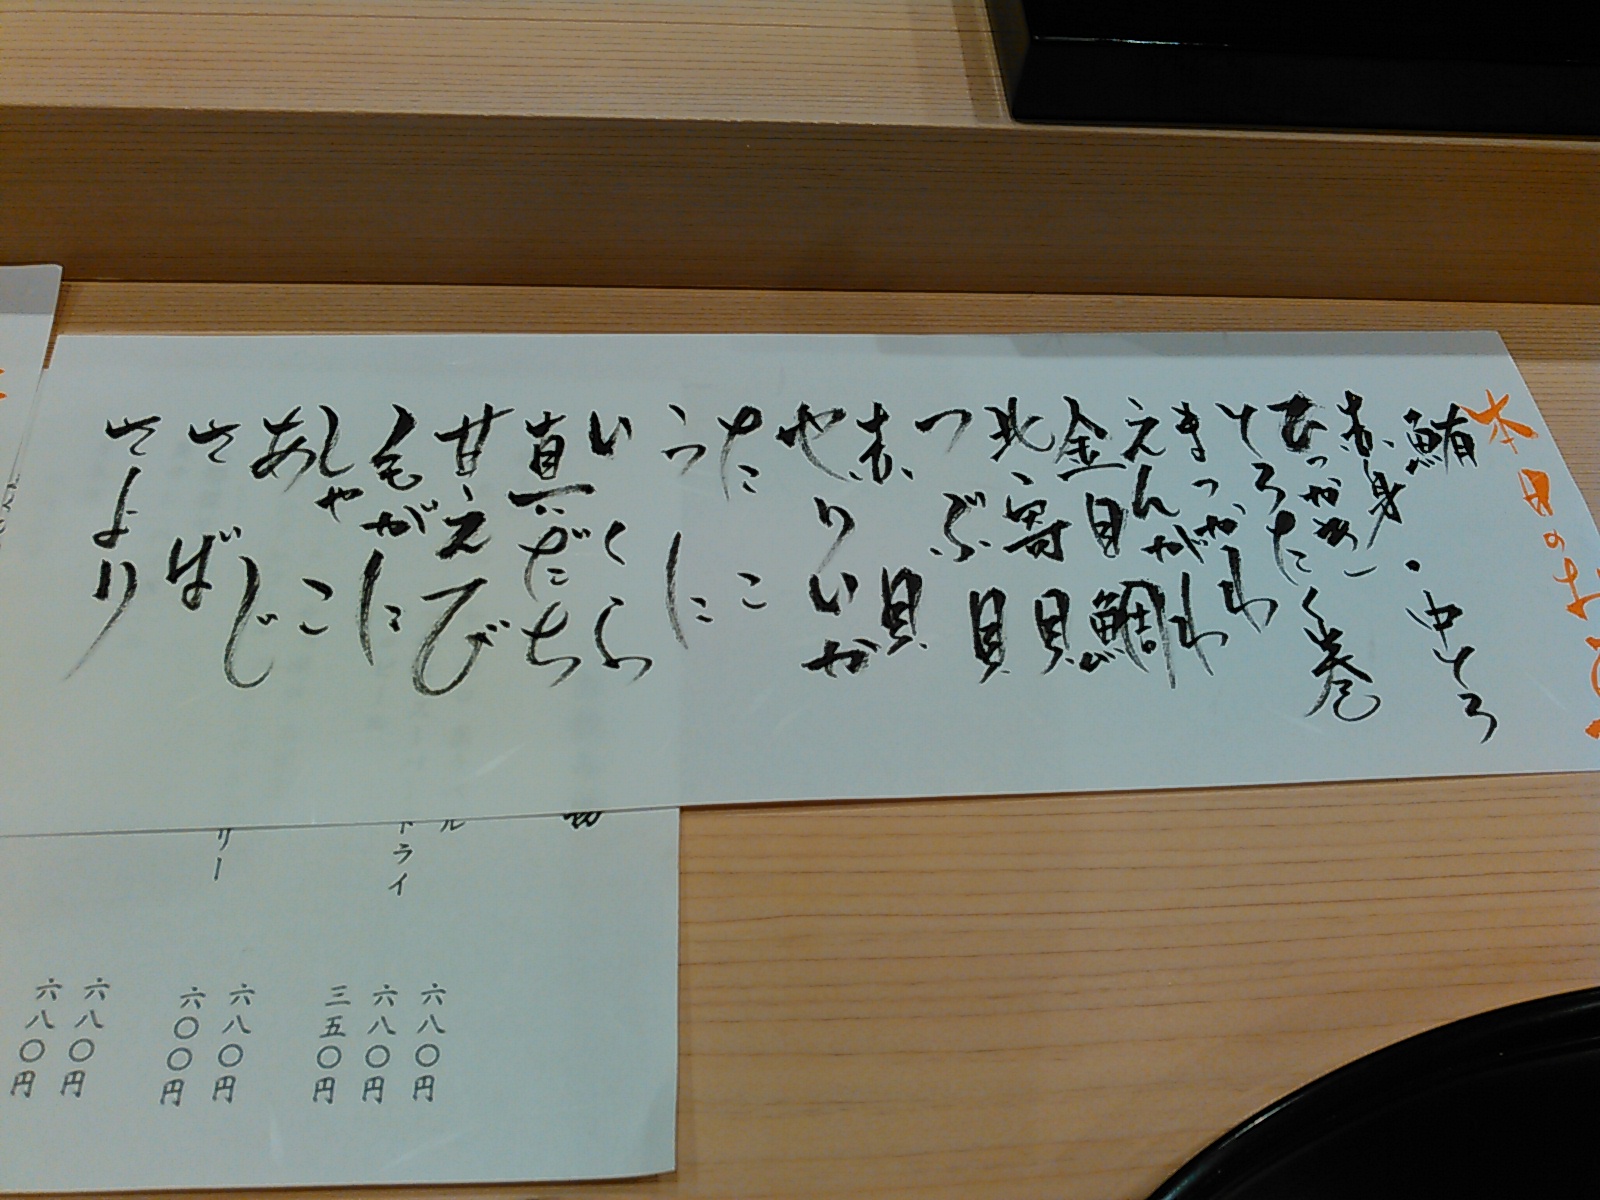 本日のお
鮪・中とろ
赤身
ひっかき
とろたく巻
きっかわ
えんがわ
金目鯛
北寄貝
つぶ貝
赤貝
やりいか
たこ
うに
いくら
真だち
甘えび
毛がに
しゃこ
あじ
さば
さより
ル
トライ
リー
六八〇円
六八〇円
三五〇円
六八〇円
六〇〇円
六八〇円
六八〇円